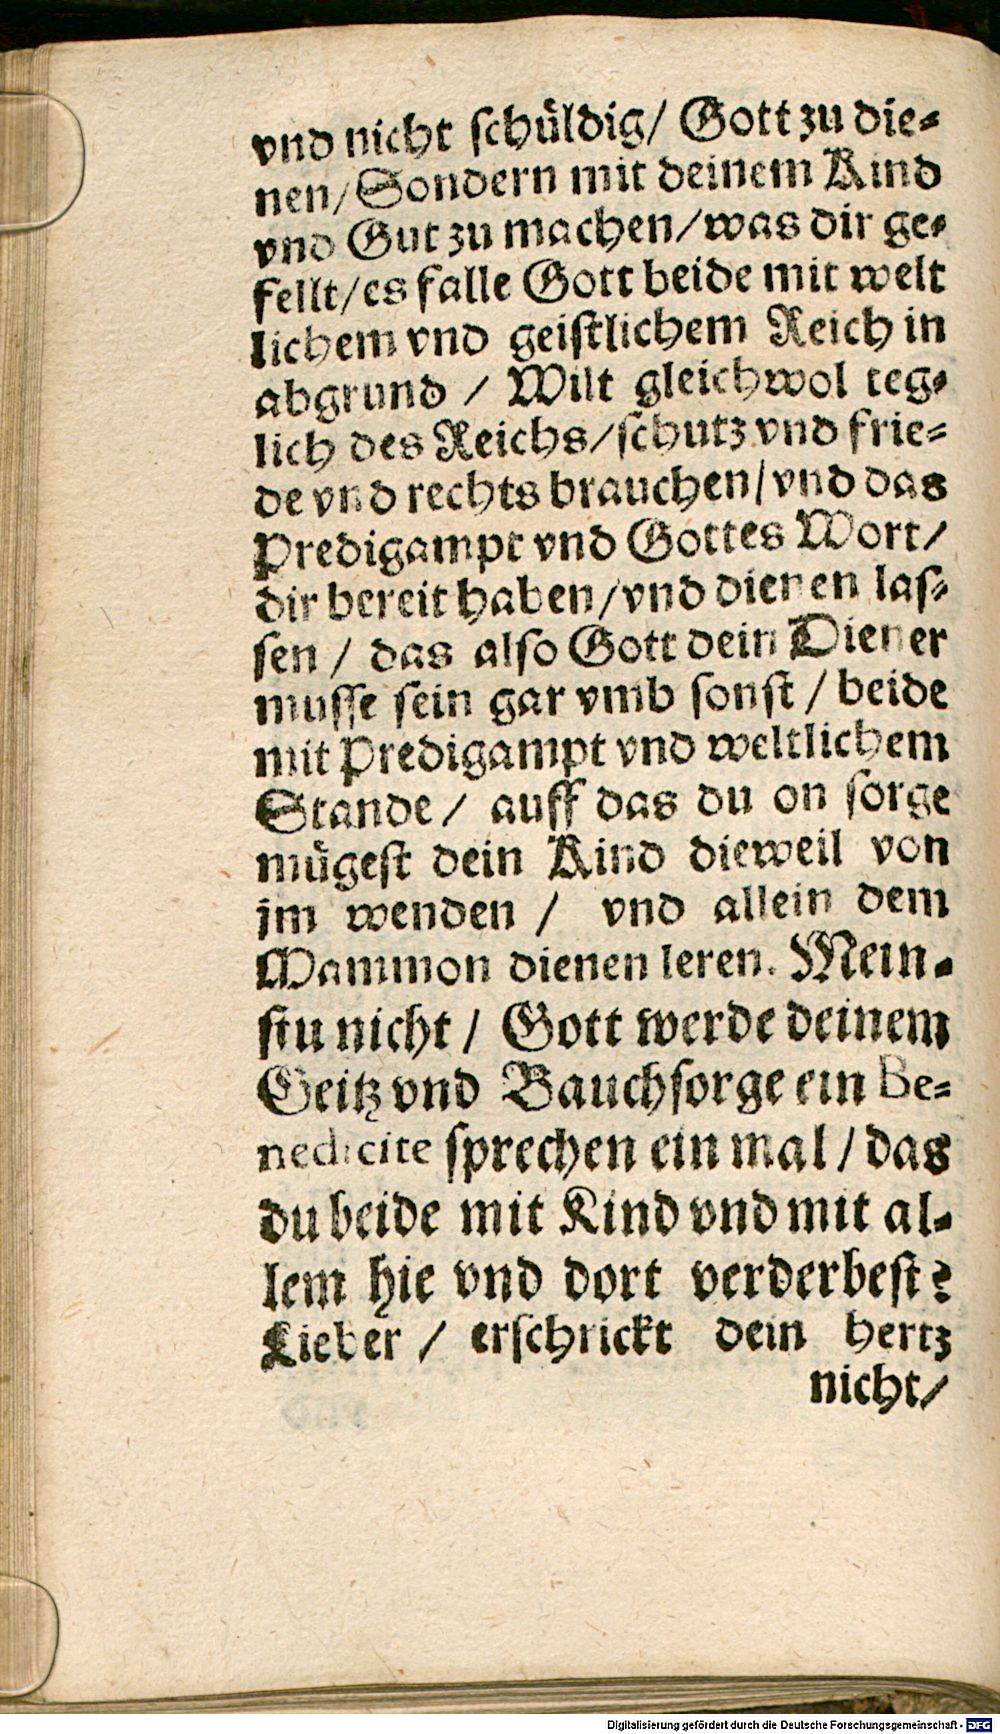 vnd nicht schüldig/ Gott zu die⸗
nen/ Sondern mit deinem Kind
vnd Gut zu machen/ was dir ge⸗
fellt/ es falle Gott beide mit welt
lichem vnd geistlichem Reich in
abgrund / Wilt gleichwol teg⸗
lich des Reichs/ schutz vnd frie⸗
de vnd rechts brauchen/ vnd das
Predigampt vnd Gottes Wort/
dir bereit haben/ vnd dienen las⸗
sen / das also Gott dein Diener
musse sein gar vmb sonst / beide
mit Predigampt vnd weltlichem
Stande/ auff das du on sorge
mügest dein Kind dieweil von
jm wenden / vnd allein dem
Mammon dienen leren. Mein⸗
stu nicht / Gott werde deinem
Geitz vnd Bauchsorge ein Be⸗
nedicite sprechen ein mal / das
du beide mit Kind vnd mit al⸗
lem hie vnd dort verderbest?
Lieber / erschrickt dein hertz
nicht/
Digitalisierung gefördert durch die Deutsche Forschungsgemeinschaft - DFG